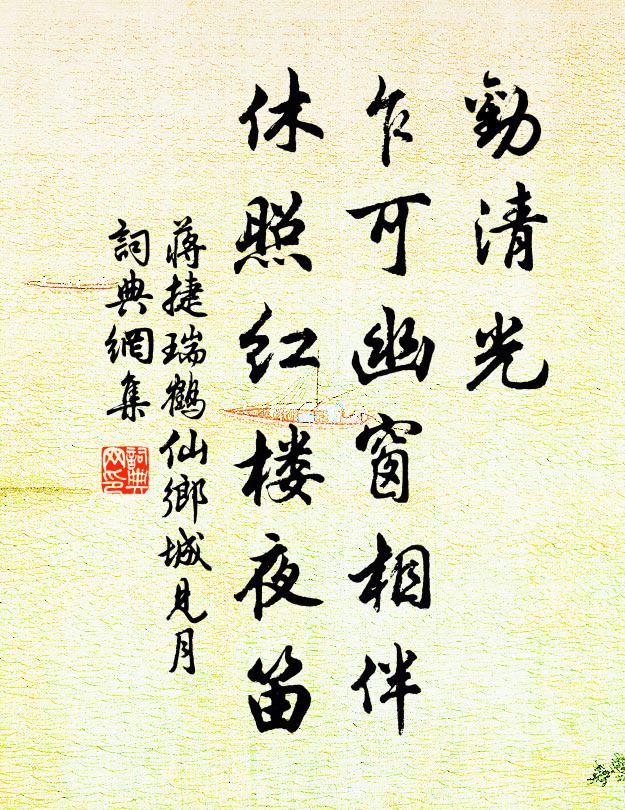 勸清光
乍可幽窗相伴
休照红楼夜笛
蔣捷瑞鶴仙鄉城見月
詞典網集
詞典
网印